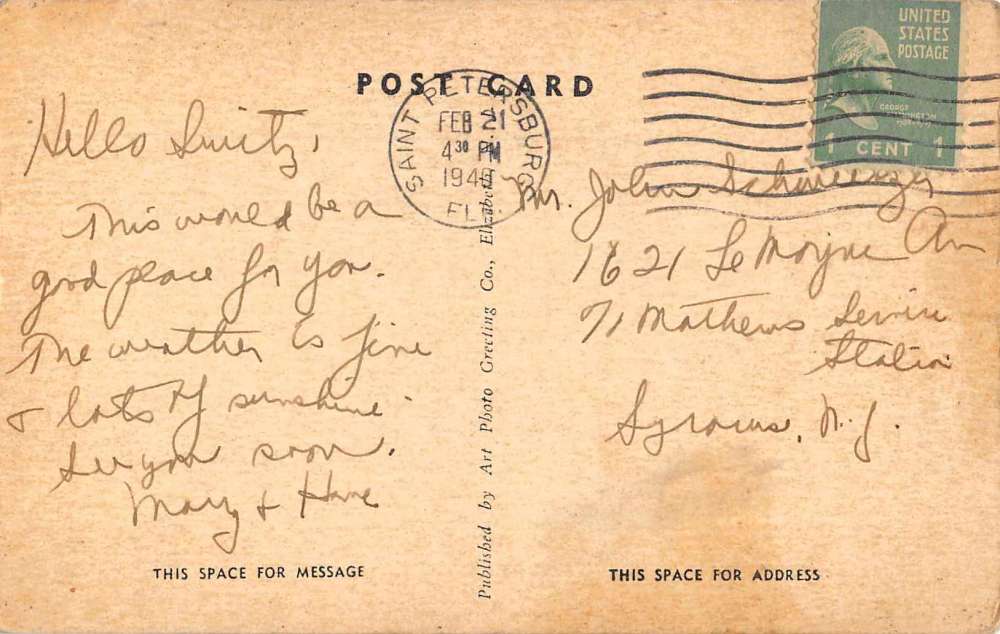 POST CARD
UNITED
STATES
POSTAGE
GEORGE
1 CENT 1
SAINT PETERSBURG
FEB 21
4 30 PM
FLA
Hello
This would be a
good place for you.
The weather is fine
& lots of sunshine -
See you soon.
Mary &
Published by Art Photo Greeting Co., Elizabeth,
Mr. John
1621 Le Moyne Av
% Mathews Service
Station
Syracuse, N.Y.
THIS SPACE FOR MESSAGE
THIS SPACE FOR ADDRESS